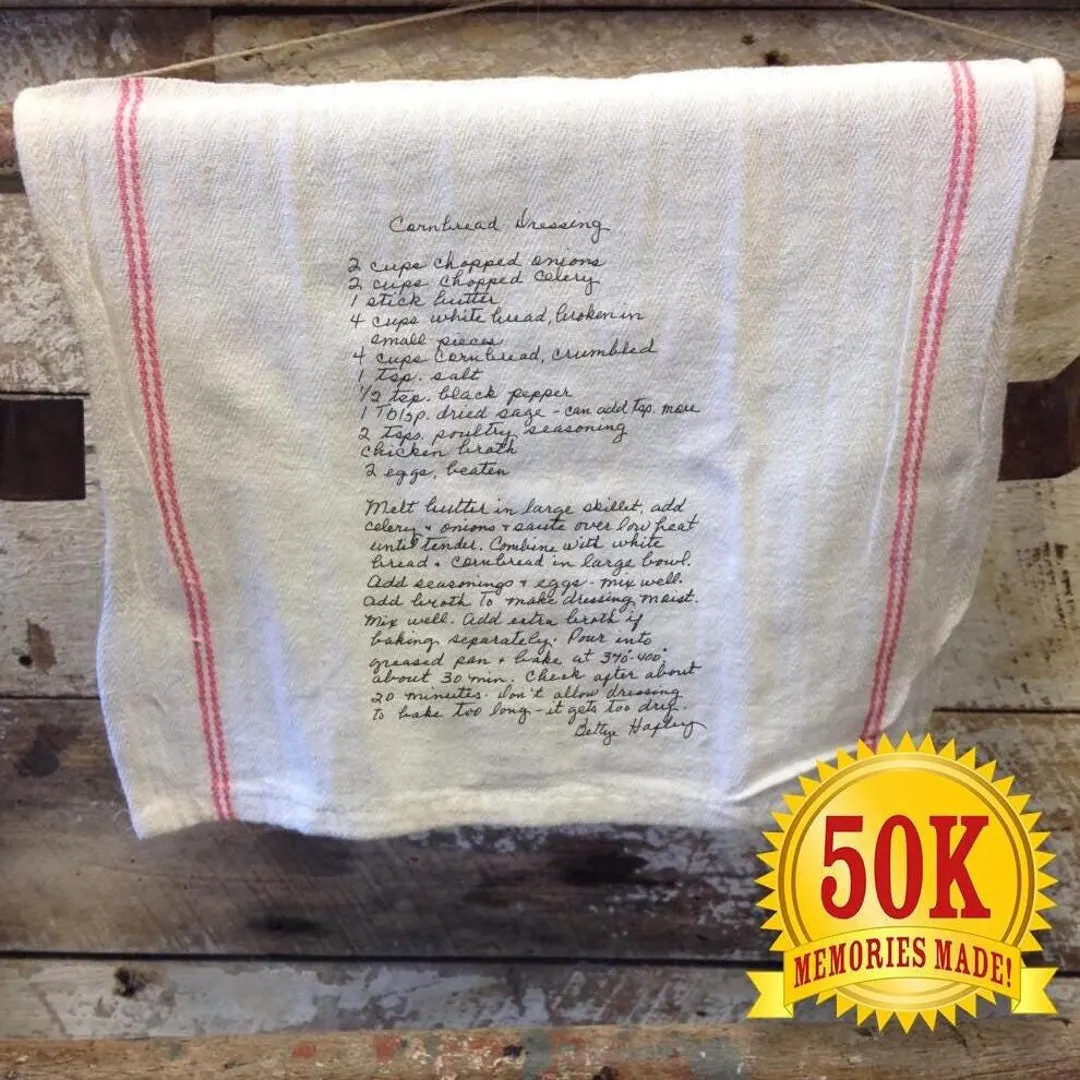 Cornbread Dressing
2 cups chopped onions
2 cups chopped celery
1 stick butter
4 cups white bread, broken in
small pieces
4 cups Cornbread, crumbled
1 tsp. salt
1/2 tsp. black pepper
1 Tblsp. dried sage - can add tsp. more
2 tsps. poultry seasoning
chicken broth
2 eggs, beaten
Melt butter in large skillet, add
celery + onions + saute over low heat
until tender. Combine with white
bread + cornbread in large bowl.
Add seasonings + eggs - mix well.
Add broth to make dressing moist.
Mix well. Add extra broth if
baking separately. Pour into
greased pan + bake at 370°-400°
about 30 min. Check after about
20 minutes. Don't allow dressing
to bake too long - it gets too dry.
Bettye
50K
MEMORIES MADE!